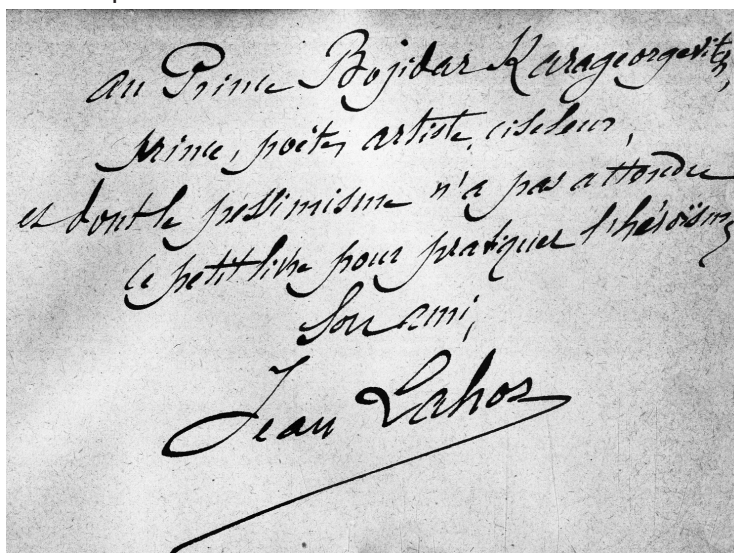 au Prince Bojidar Karageorgevitch,
prince, poète, artiste, ciseleur,
et dont le pessimisme n'a pas attendu
ce petit livre pour pratiquer l'héroïsme
Son ami,
Jean Lahor